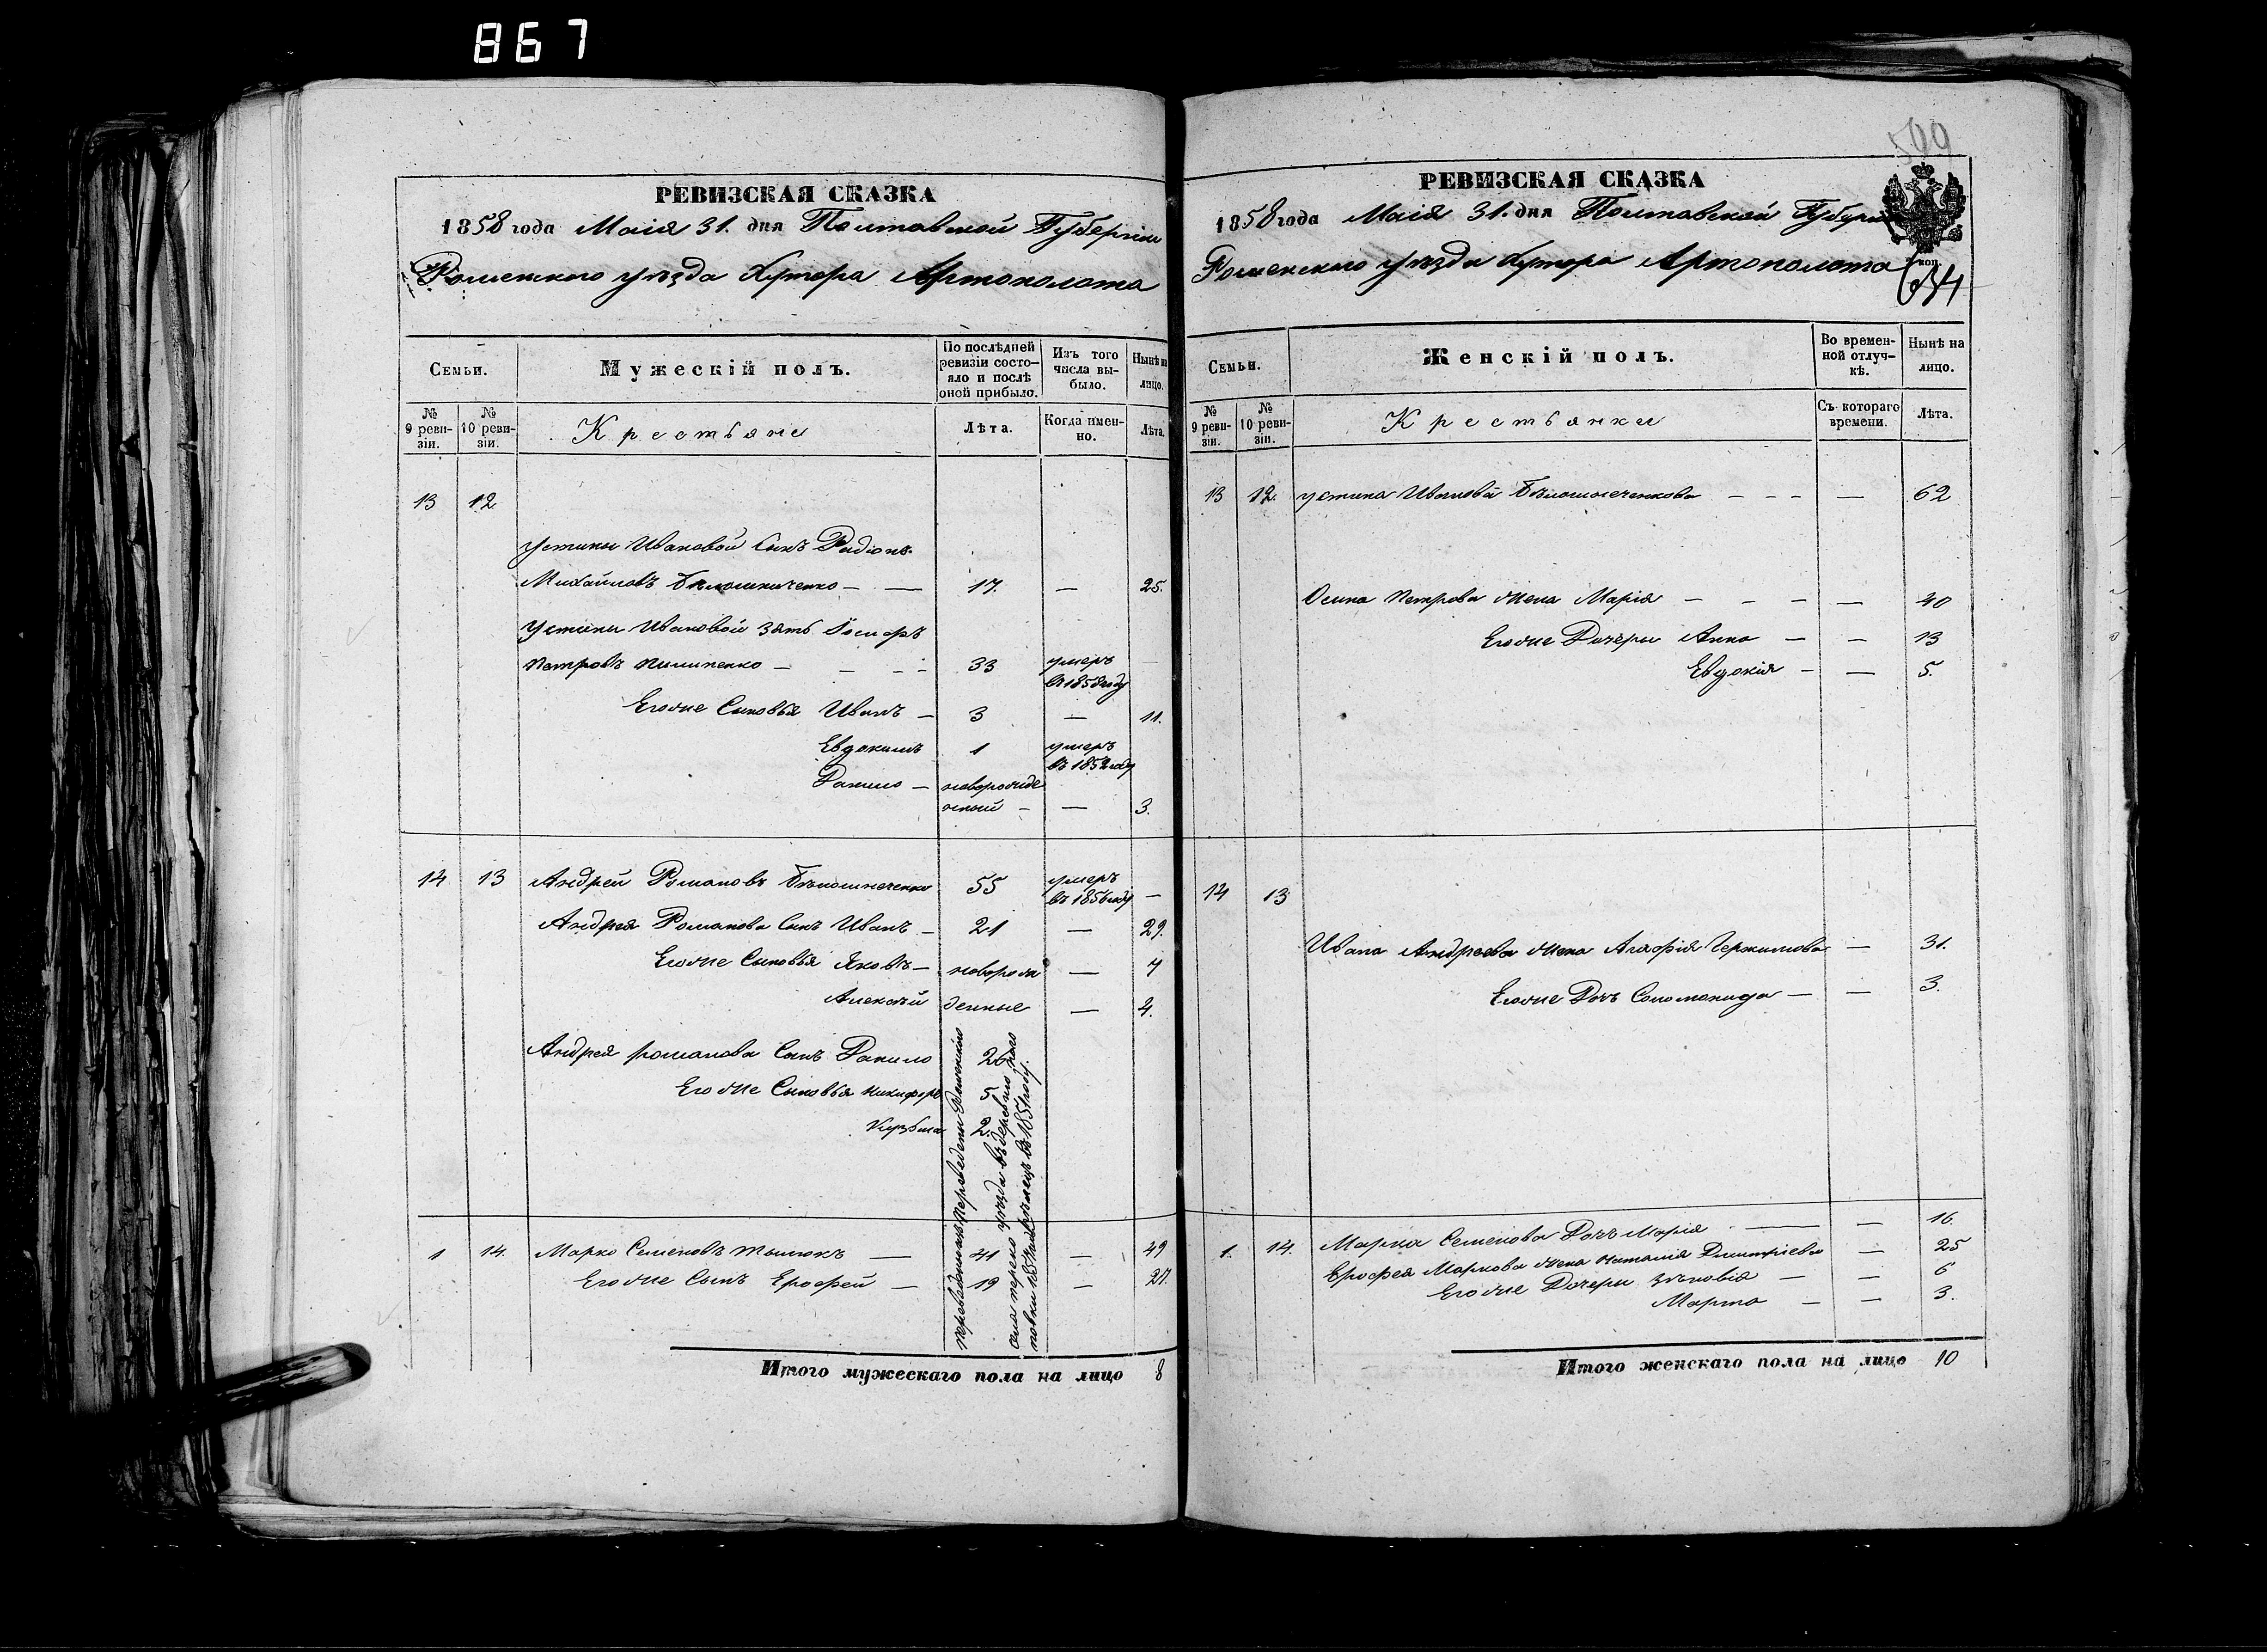 867
РЕВИЗСКАЯ СКАЗКА
1858 года Маія 31. дня Полтавской Губерніи
Роменскаго уѣзда Хутора Артополота
Семьи.
Мужескій полъ.
По послѣдней ревизіи состояло и послѣ оной прибыло.
Изъ того числа выбыло.
Нынѣ на лицо.
№ 9 ревизіи.
№ 10 ревизіи.
Крестьяне
Лѣта.
Когда именно.
Лѣта.
13 12
Устины Ивановой Сынъ Радіонъ
Михайловъ — — 17. — 25.
Устины Ивановой Зять
Петровъ Пилипенко — — — 33 умеръ
въ 1858 году
Егоже Сыновья Иванъ — 3 — 11.
Евдокимъ 1 умеръ
въ 1852 году
Данило — новорожде
нный — — 3.
14 13 Андрей Романовъ 55 умеръ
въ 1856 году —
Андрея Романова Сынъ Иванъ — 21 — 29.
Егоже Сыновья Яковъ — новорож — 7
Алексѣй денные — 4.
Андрея Романова Сынъ Данило 26
Егоже Сыновья Никифоръ 5
Кузьма 2.
уѣзда въ деревню
въ 1851 году.
1 14. Марко Семеновъ — 41 — 49
Егоже Сынъ Ерофей — 19 — 27.
Итого мужескаго пола на лицо 8
599
РЕВИЗСКАЯ СКАЗКА
1858 года Маія 31. дня Полтавской Губерніи
Роменскаго уѣзда Хутора Артополота
Семьи.
Женскій полъ.
Во временной отлучкѣ.
Нынѣ на лицо.
№ 9 ревизіи.
№ 10 ревизіи.
Крестьянки
Съ котораго времени.
Лѣта.
13 12. Устина Иванова — — — — 62
Осипа Петрова жена Марія — — — — 40
Егоже Дочери Анна — — 13
Евдокія — — 5.
14 13
Ивана Андреева жена Агафія — 31.
Егоже Дочь Соломонида — — 3.
1. 14. Марка Семенова Дочь Марія — — 16.
Ерофея Маркова жена Наталія Дмитріева — 25
Егоже Дочери Зѣновія — — 6
Марта — — 3.
Итого женскаго пола на лицо 10